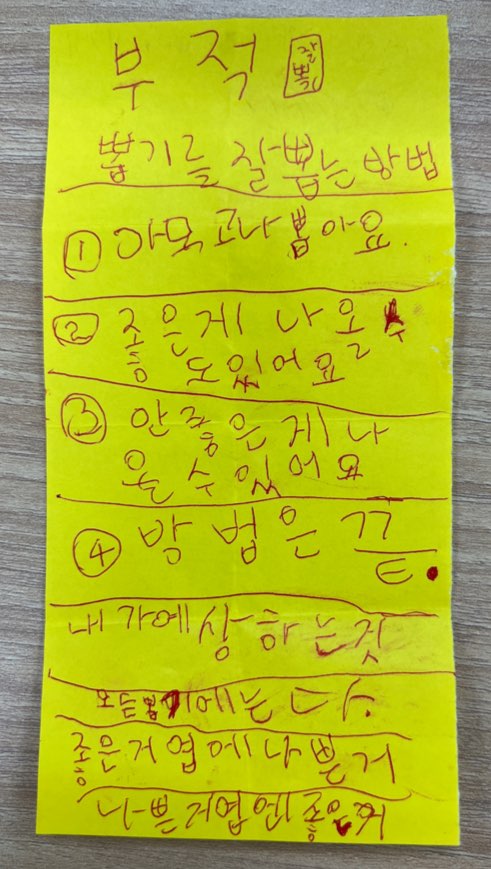 부적 잘뽑기
뽑기를 잘뽑는방법
① 아묵고나 뽑아요.
② 좋은게 나올수
도있어요
③ 안좋은게나
올수있어요
④ 방법은 끝.
내가에상하는것
모든뽑기에는 다.
좋은거엽에나쁜거
나쁜거엽엔좋은거